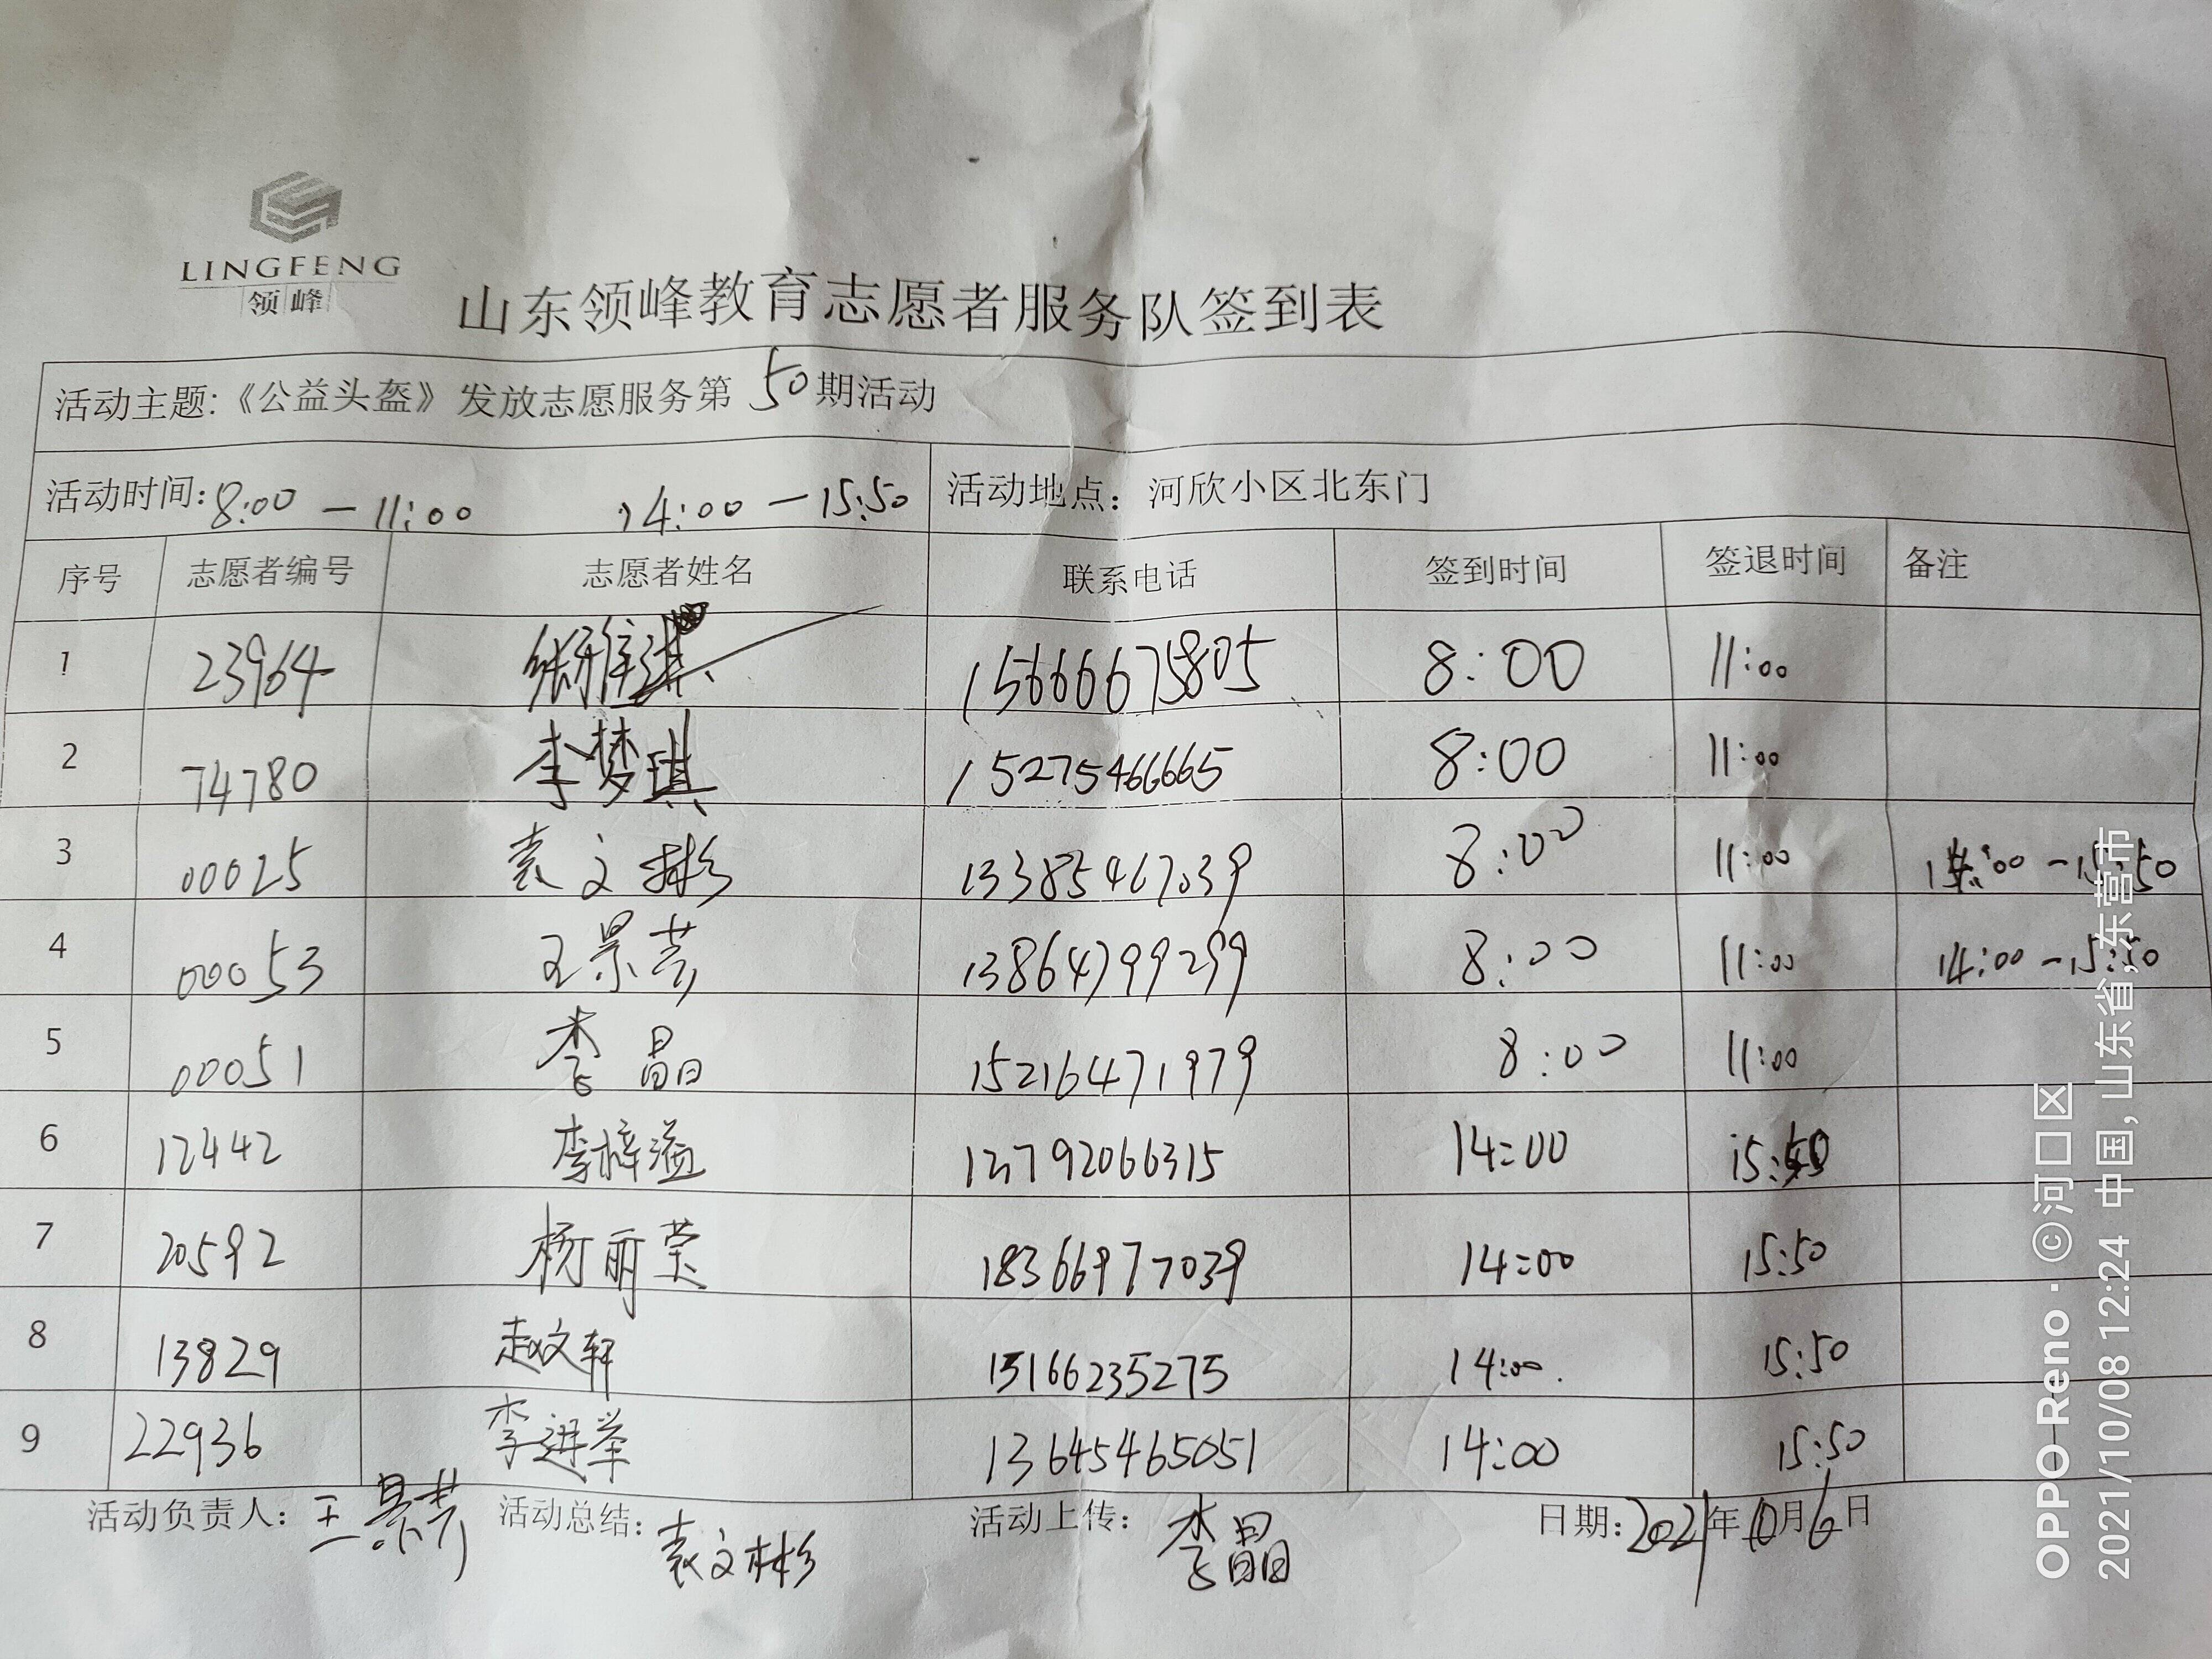 LINGFENG
领峰
山东领峰教育志愿者服务队签到表
活动主题:《公益头盔》发放志愿服务第50期活动
活动时间:8:00 — 11:00 14:00 — 15:50 活动地点: 河欣小区北东门
序号 志愿者编号 志愿者姓名 联系电话 签到时间 签退时间 备注
1 23964 张雅琪 15666675805 8:00 11:00
2 74780 李梦琪 15275466665 8:00 11:00
3 00025 袁文彬 13385467039 8:00 11:00 14:00 — 15:50
4 00053 王景芸 13864799299 8:00 11:00 14:00 — 15:50
5 00051 李晶 15216471979 8:00 11:00
6 12442 李梓溢 14:00 15:50
7 20592 杨丽莹 18366977039 14:00 15:50
8 13829 赵文轩 15166235275 14:00. 15:50
9 22936 李进举 13645465051 14:00 15:50
活动负责人: 王景芸 活动总结: 袁文彬 活动上传: 李晶 日期:2021年10月6日
OPPO Reno · ©河口区
2021/10/08 12:24 中国, 山东省,东营市